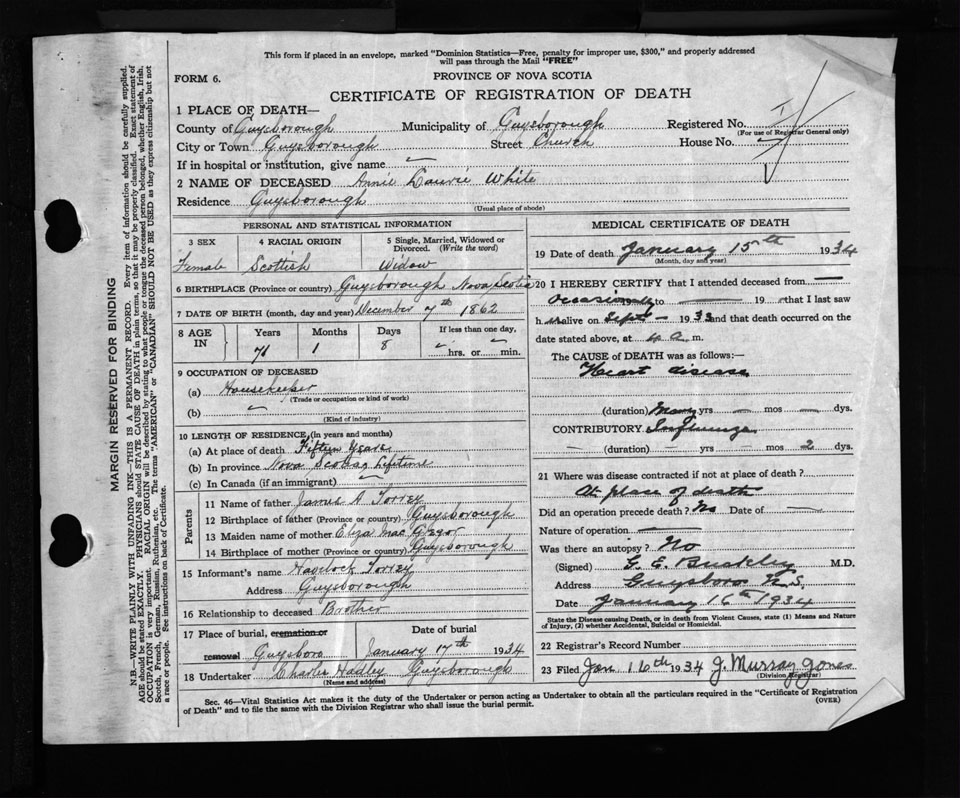 This form if placed in an envelope, marked "Dominion Statistics—Free, penalty for improper use, $300," and properly addressed
will pass through the Mail "FREE"
FORM 6.
PROVINCE OF NOVA SCOTIA
CERTIFICATE OF REGISTRATION OF DEATH
1 PLACE OF DEATH—
County of Guysborough Municipality of Guysborough Registered No.
(For use of Registrar General only)
City or Town Guysborough Street Church House No.
If in hospital or institution, give name
2 NAME OF DECEASED Annie Laurie White
Residence Guysborough
(Usual place of abode)
PERSONAL AND STATISTICAL INFORMATION
3 SEX 4 RACIAL ORIGIN 5 Single, Married, Widowed or
Divorced. (Write the word)
Female Scottish Widow
6 BIRTHPLACE (Province or country) Guysborough Nova Scotia
7 DATE OF BIRTH (month, day and year) December 7th 1862
8 AGE IN Years Months Days If less than one day,
71 1 8 hrs. or min.
9 OCCUPATION OF DECEASED
(a) Housekeeper
(Trade or occupation or kind of work)
(b)
(Kind of industry)
10 LENGTH OF RESIDENCE (in years and months)
(a) At place of death Fifteen Years
(b) In province Nova Scotia Lifetime
(c) In Canada (if an immigrant)
Parents
11 Name of father James A Torrey
12 Birthplace of father (Province or country) Guysborough
13 Maiden name of mother Eliza MacGregor
14 Birthplace of mother (Province or country) Guysborough
15 Informant's name Havelock Torrey
Address Guysborough
16 Relationship to deceased Brother
17 Place of burial, cremation or Date of burial
removal Guysboro January 17th 1934
18 Undertaker Charles Hadley Guysborough
(Name and address)
MEDICAL CERTIFICATE OF DEATH
19 Date of death January 15th 1934
(Month, day and year)
20 I HEREBY CERTIFY that I attended deceased from
occasionally to 19 that I last saw
h alive on Sept 1933 and that death occurred on the
date stated above, at a.m.
The CAUSE of DEATH was as follows:—
Heart disease
(duration) Many yrs mos dys.
CONTRIBUTORY Influenza
(duration) yrs mos 2 dys.
21 Where was disease contracted if not at place of death?
At place of death
Did an operation precede death? No Date of
Nature of operation
Was there an autopsy? No
(Signed) G. E. Buckley M.D.
Address Guysboro N.S.
Date January 16th 1934
State the Disease causing Death, or in death from Violent Causes, state (1) Means and Nature
of Injury, (2) whether Accidental, Suicidal or Homicidal.
22 Registrar's Record Number
23 Filed Jan 16th 1934 J. Murray Jones
(Division Registrar)
Sec. 46—Vital Statistics Act makes it the duty of the Undertaker or person acting as Undertaker to obtain all the particulars required in the "Certificate of Registration
of Death" and to file the same with the Division Registrar who shall issue the burial permit.
(OVER)
MARGIN RESERVED FOR BINDING
N.B.—WRITE PLAINLY WITH UNFADING INK—THIS IS A PERMANENT RECORD. Every item of information should be carefully supplied.
AGE should be stated EXACTLY. PHYSICIANS should STATE CAUSE OF DEATH in plain terms, so that it may be properly classified. Exact statement of
OCCUPATION is very important. RACIAL ORIGIN will be described by stating to what people or tongue the deceased person belonged, whether English, Irish,
Scotch, French, German, Russian, Ruthenian, etc. The terms "AMERICAN" or "CANADIAN" SHOULD NOT BE USED as they express citizenship but not
a race or people. See instructions on back of Certificate.